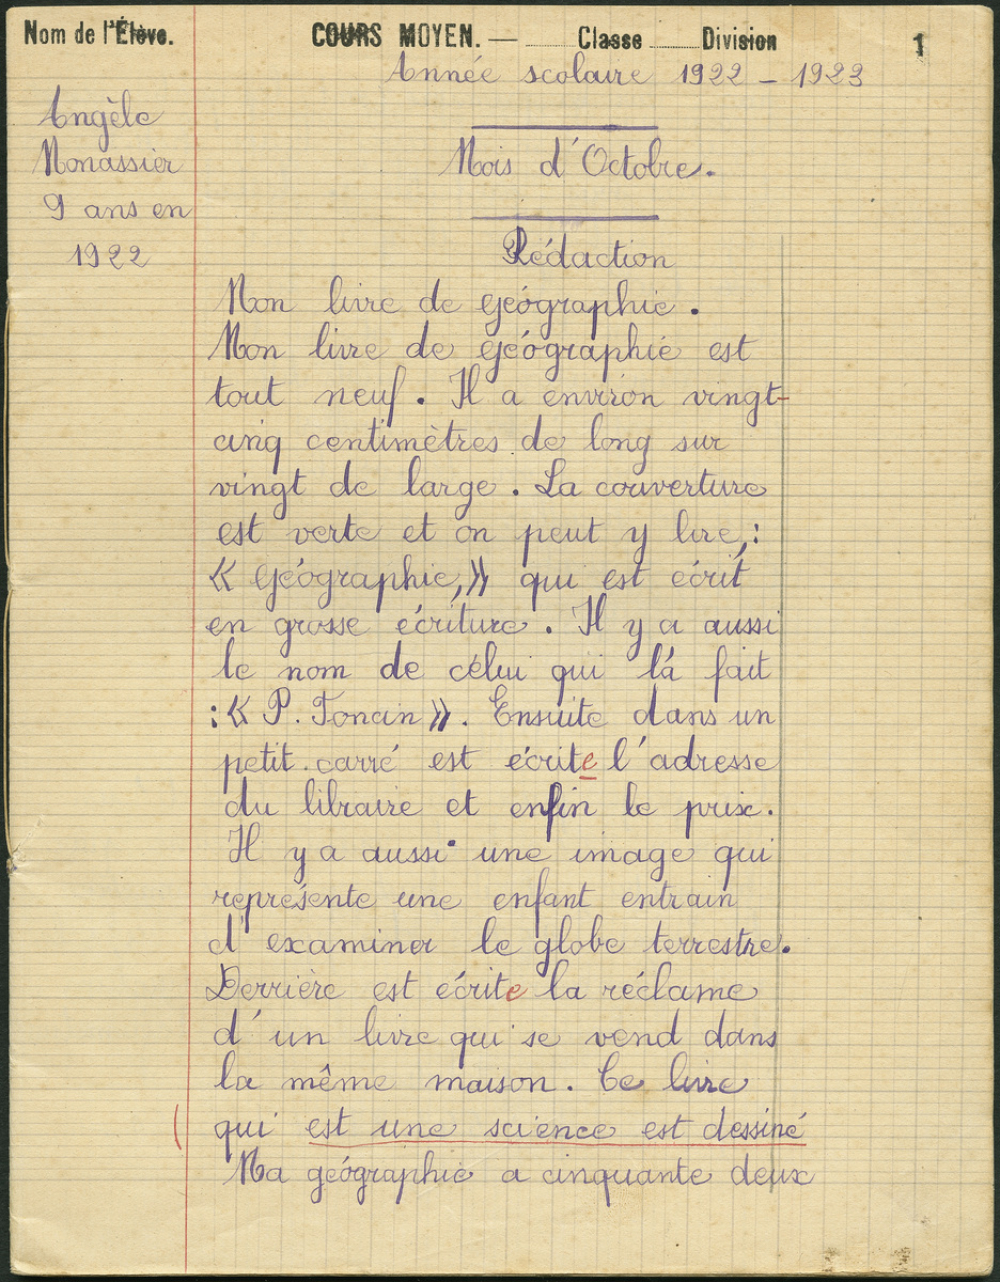 Nom de l'Élève.
COURS MOYEN. — Classe Division
1
Année scolaire 1922 - 1923
Angèle
Monassier
9 ans en
1922
Mois d'Octobre.
Rédaction
Mon livre de géographie.
Mon livre de géographie est
tout neuf. Il a environ vingt-
cinq centimètres de long sur
vingt de large. La couverture
est verte et on peut y lire, :
« Géographie, » qui est écrit
en grosse écriture. Il y a aussi
le nom de célui qui l'à fait
: « P. Foncin ». Ensuite dans un
petit carré est écrite l'adresse
du libraire et enfin le prix.
Il y a aussi une image qui
représente une enfant entrain
d'examiner le globe terrestre.
Derrière est écrite la réclame
d'un livre qui se vend dans
la même maison. Ce livre
qui est une science est dessiné
Ma géographie a cinquante deux